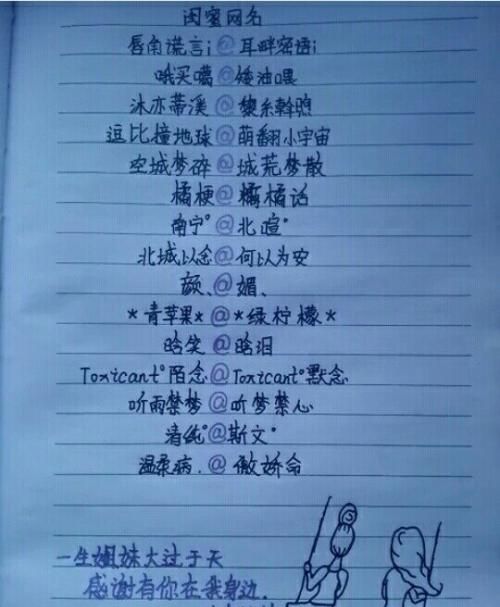 闺蜜网名
唇角谎言i@耳畔密语i
哦买噶@矮油喂
沐亦蒂溪@黎糸幹煦
逗比撞地球@萌翻小宇宙
空城梦碎@城荒梦散
橘梗@橘话
南宁°@北喧°
北城以念@何以为安
颜、@媚、
*青苹果*@*绿柠檬*
晗笑@晗泪
Toxicant°陌念@Toxicant°默念
听雨禁梦@听梦禁心
清纯°@斯文°
温柔病.@傲娇命
一生姐妹大过于天
感谢有你在我身边.